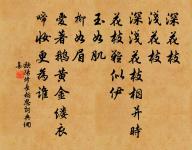 深花枝
浅花枝
深浅花枝相并時
花枝難似伊
玉如肌
柳如眉
愛著鵝黄金縷衣
啼妝更為誰
歐陽修長相思詞